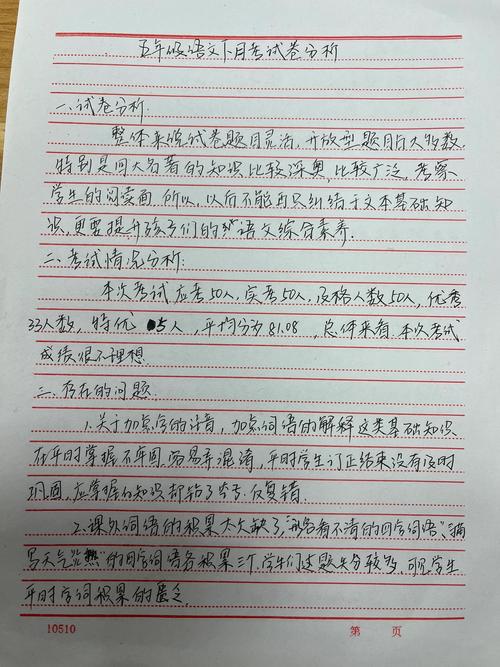 五年级语文下月考试卷分析
一、试卷分析:
整体来说试卷题目灵活,开放型题目占大多数,
特别是四大名著的知识比较深奥,比较广泛,考察
学生的阅读面,所以,以后不能再只纠结于文本基础知
识,更要提升孩子们的语文综合素养.
二、考试情况分析:
本次考试应考50人,实考50人,及格人数50人,优秀
33人数,特优 5人,平均分为81.08,总体来看,本次考试
成绩很不理想
三、存在的问题.
1.关于加点字的注音,加点词语的解释这类基础知识
在平时掌握不牢固,容易弄混淆,平时学生订正结束没有及时
巩固,应掌握的知识却错了,反复错
2.课外词语的积累太欠缺了,含有不清的四字词语、描
写天气"热"的四字词语各积累三个,学生们这题失分较多,可见学生
平时字词积累的匮乏.
10510
第 页